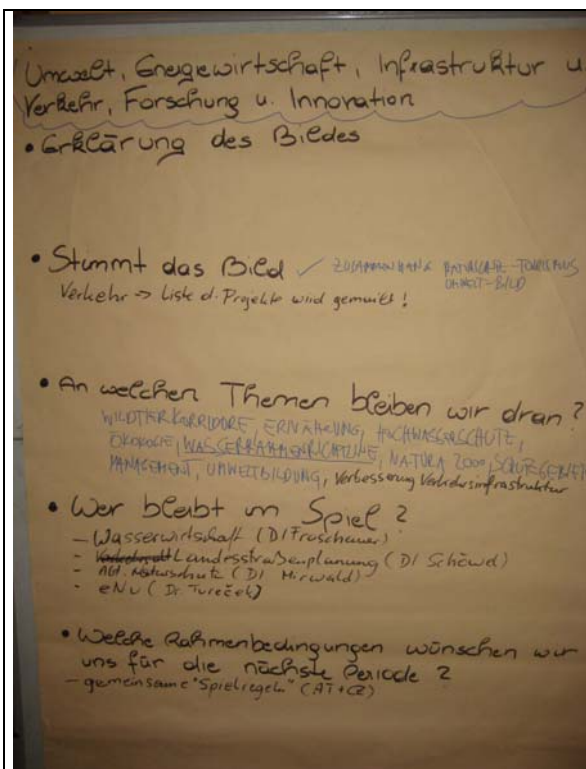 Umwelt, Energiewirtschaft, Infrastruktur u.
Verkehr, Forschung u. Innovation
• Erklärung des Bildes
• Stimmt das Bild ✓ ZUSAMMENHANG NATURSCHUTZ-TOURISMUS
UMWELT-BILD
Verkehr => Liste d. Projekte wird gemailt!
• An welchen Themen bleiben wir dran?
WILDTIERKORRIDORE, ERNÄHRUNG, HOCHWASSERSCHUTZ,
ÖKOLOGIE, WASSERRAHMENRICHTLINIE, NATURA 2000, SCHUTZGEBIET
MANAGEMENT, UMWELTBILDUNG, Verbesserung Verkehrsinfrastruktur
• Wer bleibt im Spiel?
- Wasserwirtschaft (DI Froschauer)
- Landesstraßenplanung (DI
- Abt. Naturschutz (DI Mirwald)
- eNu (Dr. Tureček)
• Welche Rahmenbedingungen wünschen wir
uns für die nächste Periode?
- gemeinsame "Spielregeln" (AT+CZ)